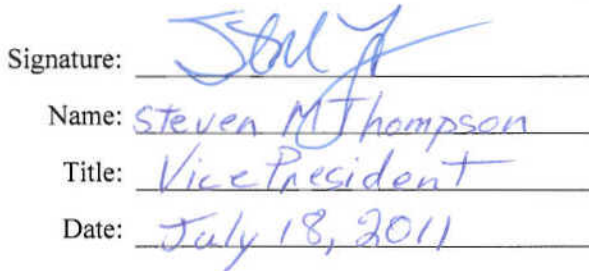 Signature:
Name: Steven M Thompson
Title: Vice President
Date: July 18, 2011